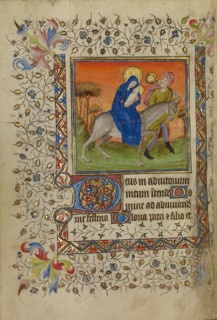 Deus in adiutorium
meum intende Do
mine ad adiuvand
me festina Gloria patri et filio et